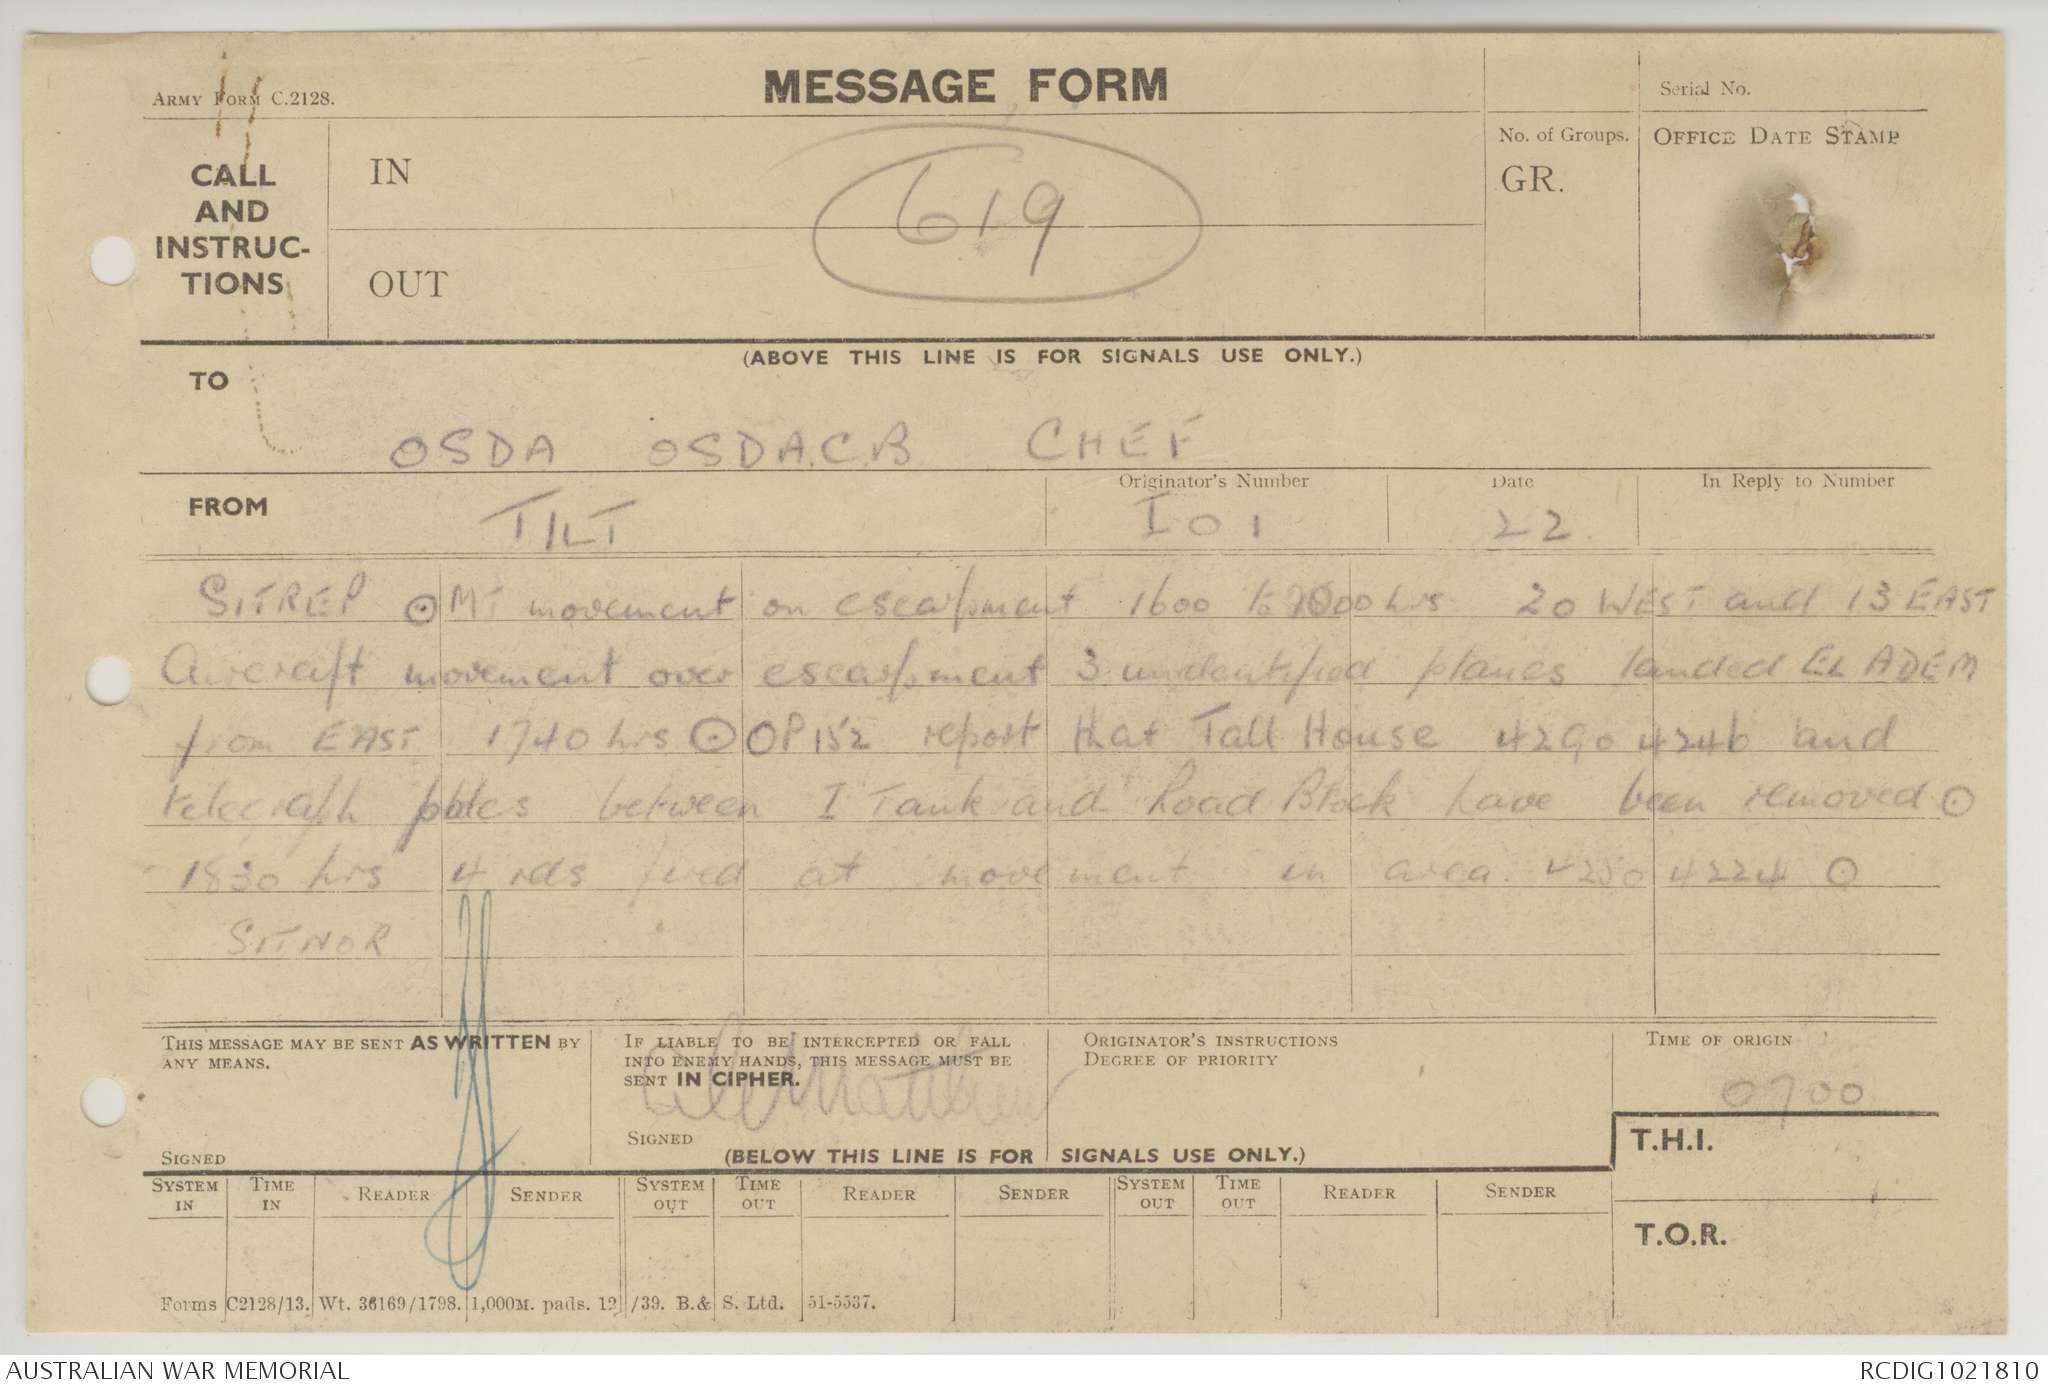 MESSAGE FORM
ARMY FORM C.2128.
Serial No.
CALL AND INSTRUC-TIONS
IN
OUT
619
No. of Groups.
GR.
OFFICE DATE STAMP
(ABOVE THIS LINE IS FOR SIGNALS USE ONLY.)
TO
OSDA OSDA.C.B CHEF
FROM
TILT
Originator's Number
I 01
Date
22
In Reply to Number
SITREP ⊙ MT movement on escarpment 1600 to hrs 20 WEST and 13 EAST
Aircraft movement over escarpment 3 unidentified planes landed EL ADEM
from EAST 1740 hrs ⊙ OP 152 report that Tall House 4290 4246 and
telegraph poles between I Tank and Road Block have been removed ⊙
1830 hrs 4 rds fired at movement in area 4250 4224 ⊙
SITNOR
THIS MESSAGE MAY BE SENT AS WRITTEN BY ANY MEANS.
SIGNED
IF LIABLE TO BE INTERCEPTED OR FALL INTO ENEMY HANDS, THIS MESSAGE MUST BE SENT IN CIPHER.
SIGNED
ORIGINATOR'S INSTRUCTIONS
DEGREE OF PRIORITY
TIME OF ORIGIN
0700
(BELOW THIS LINE IS FOR SIGNALS USE ONLY.)
T.H.I.
T.O.R.
SYSTEM IN TIME IN READER SENDER SYSTEM OUT TIME OUT READER SENDER SYSTEM OUT TIME OUT READER SENDER
Forms C2128/13. Wt. 36169/1798. 1,000M. pads. 12/39. B.& S. Ltd. 51-5537.
AUSTRALIAN WAR MEMORIAL
RCDIG1021810